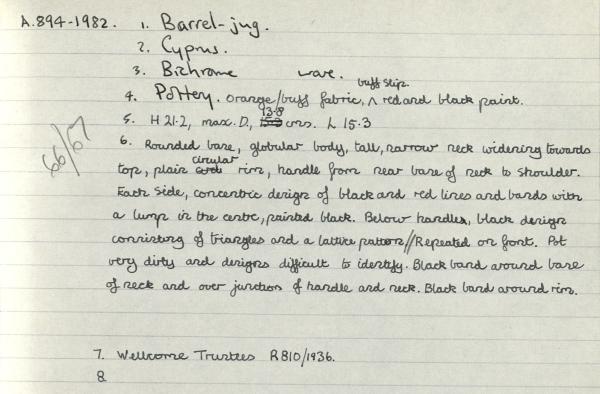 A.894-1982. 1. Barrel-jug.
2. Cyprus.
3. Bichrome ware.
4. Pottery. Orange/buff fabric, ^ buff slip. red and black paint.
5. H 21.2, max. D, 13.8 cms. L 15.3
6. Rounded base, globular body, tall, narrow neck widening towards
top, plain circular rim, handle from near base of neck to shoulder.
Each side, concentric design of black and red lines and bands with
a lump in the centre, painted black. Below handle, black design
consisting of triangles and a lattice pattern // Repeated on front. Pot
very dirty and designs difficult to identify. Black band around base
of neck and over junction of handle and neck. Black band around rim.
66/67
7. Wellcome Trustees R810/1936.
8